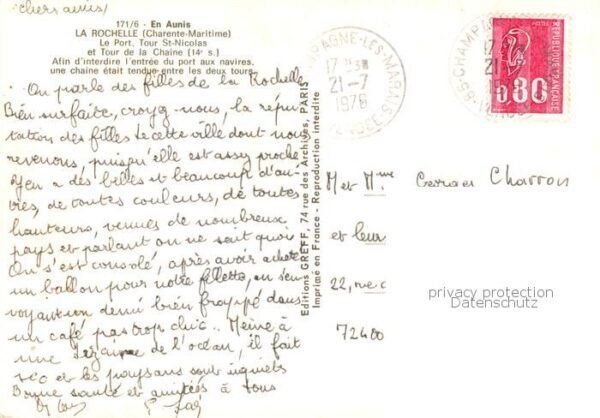 chers amis,
171/6 - En Aunis
LA ROCHELLE (Charente-Maritime)
Le Port, Tour St-Nicolas
et Tour de la Chaîne (14e s.)
Afin d'interdire l'entrée du port aux navires,
une chaîne était tendue entre les deux tours.
On parle des filles de la Rochelle
Bien surfaite, croyez-nous, la répu-
tation des filles de cette ville dont nous
revenons, puisqu'elle est assez proche.
Y en a des belles et beaucoup d'au-
tres, de toutes couleurs, de toutes
hauteurs, venues de nombreux
pays et parlant on ne sait quoi
On s'est consolé, après avoir acheté
un ballon pour notre fillette, en s'en
voyant un demi bien frappé dans
un café pas trop chic.. Même à
une dizaine de l'océan, il fait
et les paysans sont inquiets
Bonne santé et amitiés à tous
Editions GREFF, 74 rue des Archives, PARIS
Imprimé en France - Reproduction interdite
17 H 30
21-7
1978
VENDEE
85 CHAMP
REPUBLIQUE FRANÇAISE
0,80
M et Mme Charron
et leur
22, rue
72400
privacy protection
Datenschutz